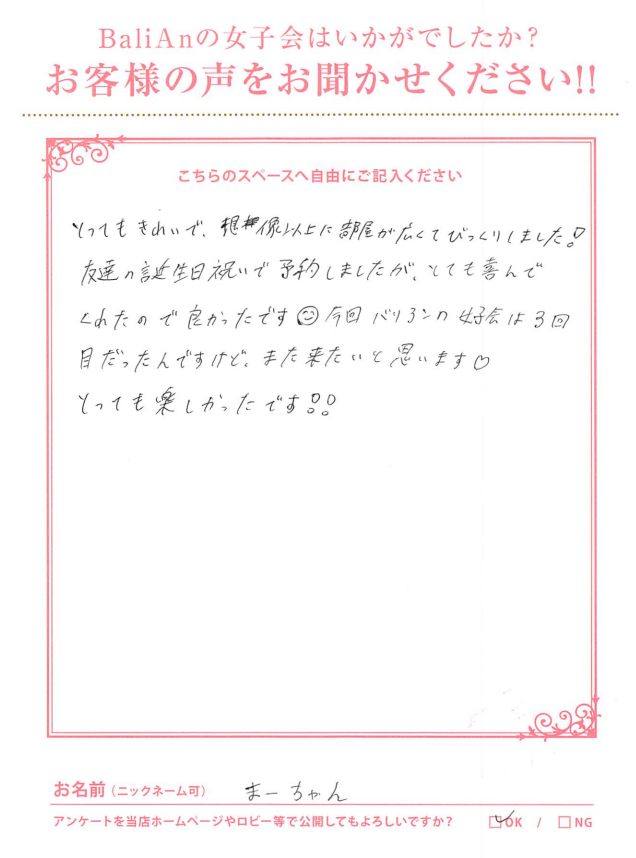 BaliAnの女子会はいかがでしたか?
お客様の声をお聞かせください!!
こちらのスペースへ自由にご記入ください
とってもきれいで、想像以上に部屋が広くてびっくりしました!
友達の誕生日祝いで予約しましたが、とても喜んで
くれたので良かったです☺今回バリアンの女子会は3回
目だったんですけど、また来たいと思います♡
とっても楽しかったです!!
お名前(ニックネーム可) まーちゃん
アンケートを当店ホームページやロビー等で公開してもよろしいですか? ☑OK / □NG